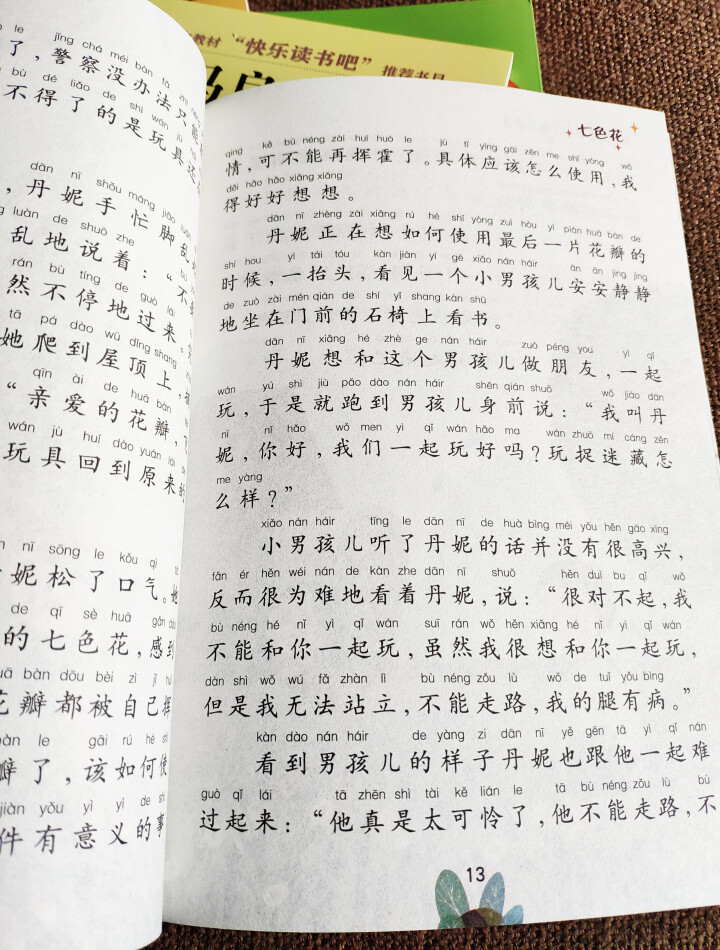 教材 “快乐读书吧” 推荐书目
le jǐng chá méi bàn fǎ
了，警察没办法只能
bù dé liǎo de shì wán jù
不得了的是玩具还
dān nī shǒu máng jiǎo luàn
，丹妮手忙脚乱
luàn de shuō zhe
乱地说着：“不
rán bù tíng de guò lái
然不停地过来。
tā pá dào wū dǐng shang
她爬到屋顶上，
qīn ài de huā bàn
“亲爱的花瓣，飞
wán jù huí dào yuán lái de
玩具回到原来的
nī sōng le kǒu qì
妮松了口气。她
de qī sè huā gǎn dào
的七色花，感到
huā bàn dōu bèi zì jǐ huī
花瓣都被自己挥
bàn le gāi rú hé shǐ
瓣了，该如何使
jiàn yǒu yì yì de shì
件有意义的事
七色花
qing kě bù néng zài huī huò le jù tǐ yīng gāi zěn me shǐ yòng wǒ
情，可不能再挥霍了。具体应该怎么使用，我
děi hǎo hāo xiǎng xiang
得好好想想。
dān nī zhèng zài xiǎng rú hé shǐ yòng zuì hòu yí piàn huā bàn de
丹妮正在想如何使用最后一片花瓣的
shí hou yì tái tóu kàn jiàn yí gè xiǎo nán háir ān ān jìng jìng
时候，一抬头，看见一个小男孩儿安安静静
de zuò zài mén qián de shí yǐ shang kàn shū
地坐在门前的石椅上看书。
dān nī xiǎng hé zhè ge nán háir zuò péng you yì qǐ
丹妮想和这个男孩儿做朋友，一起
wán yú shì jiù pǎo dào nán háir shēn qián shuō wǒ jiào dān
玩，于是就跑到男孩儿身前说：“我叫丹
nī nǐ hǎo wǒ men yì qǐ wán hǎo ma wán zhuō mí cáng zěn
妮，你好，我们一起玩好吗？玩捉迷藏怎
me yàng
么样？”
xiǎo nán háir tīng le dān nī de huà bìng méi yǒu hěn gāo xìng
小男孩儿听了丹妮的话并没有很高兴，
fǎn ér hěn wéi nán de kàn zhe dān nī shuō hěn duì bu qǐ wǒ
反而很为难地看着丹妮，说：“很对不起，我
bù néng hé nǐ yì qǐ wán suī rán wǒ hěn xiǎng hé nǐ yì qǐ wán
不能和你一起玩，虽然我很想和你一起玩，
dàn shì wǒ wú fǎ zhàn lì bù néng zǒu lù wǒ de tuǐ yǒu bìng
但是我无法站立，不能走路，我的腿有病。”
kàn dào nán háir de yàng zi dān nī yě gēn tā yì qǐ nán
看到男孩儿的样子丹妮也跟他一起难
guò qǐ lái tā zhēn shì tài kě lián le tā bù néng zǒu lù bù
过起来：“他真是太可怜了，他不能走路，不
13